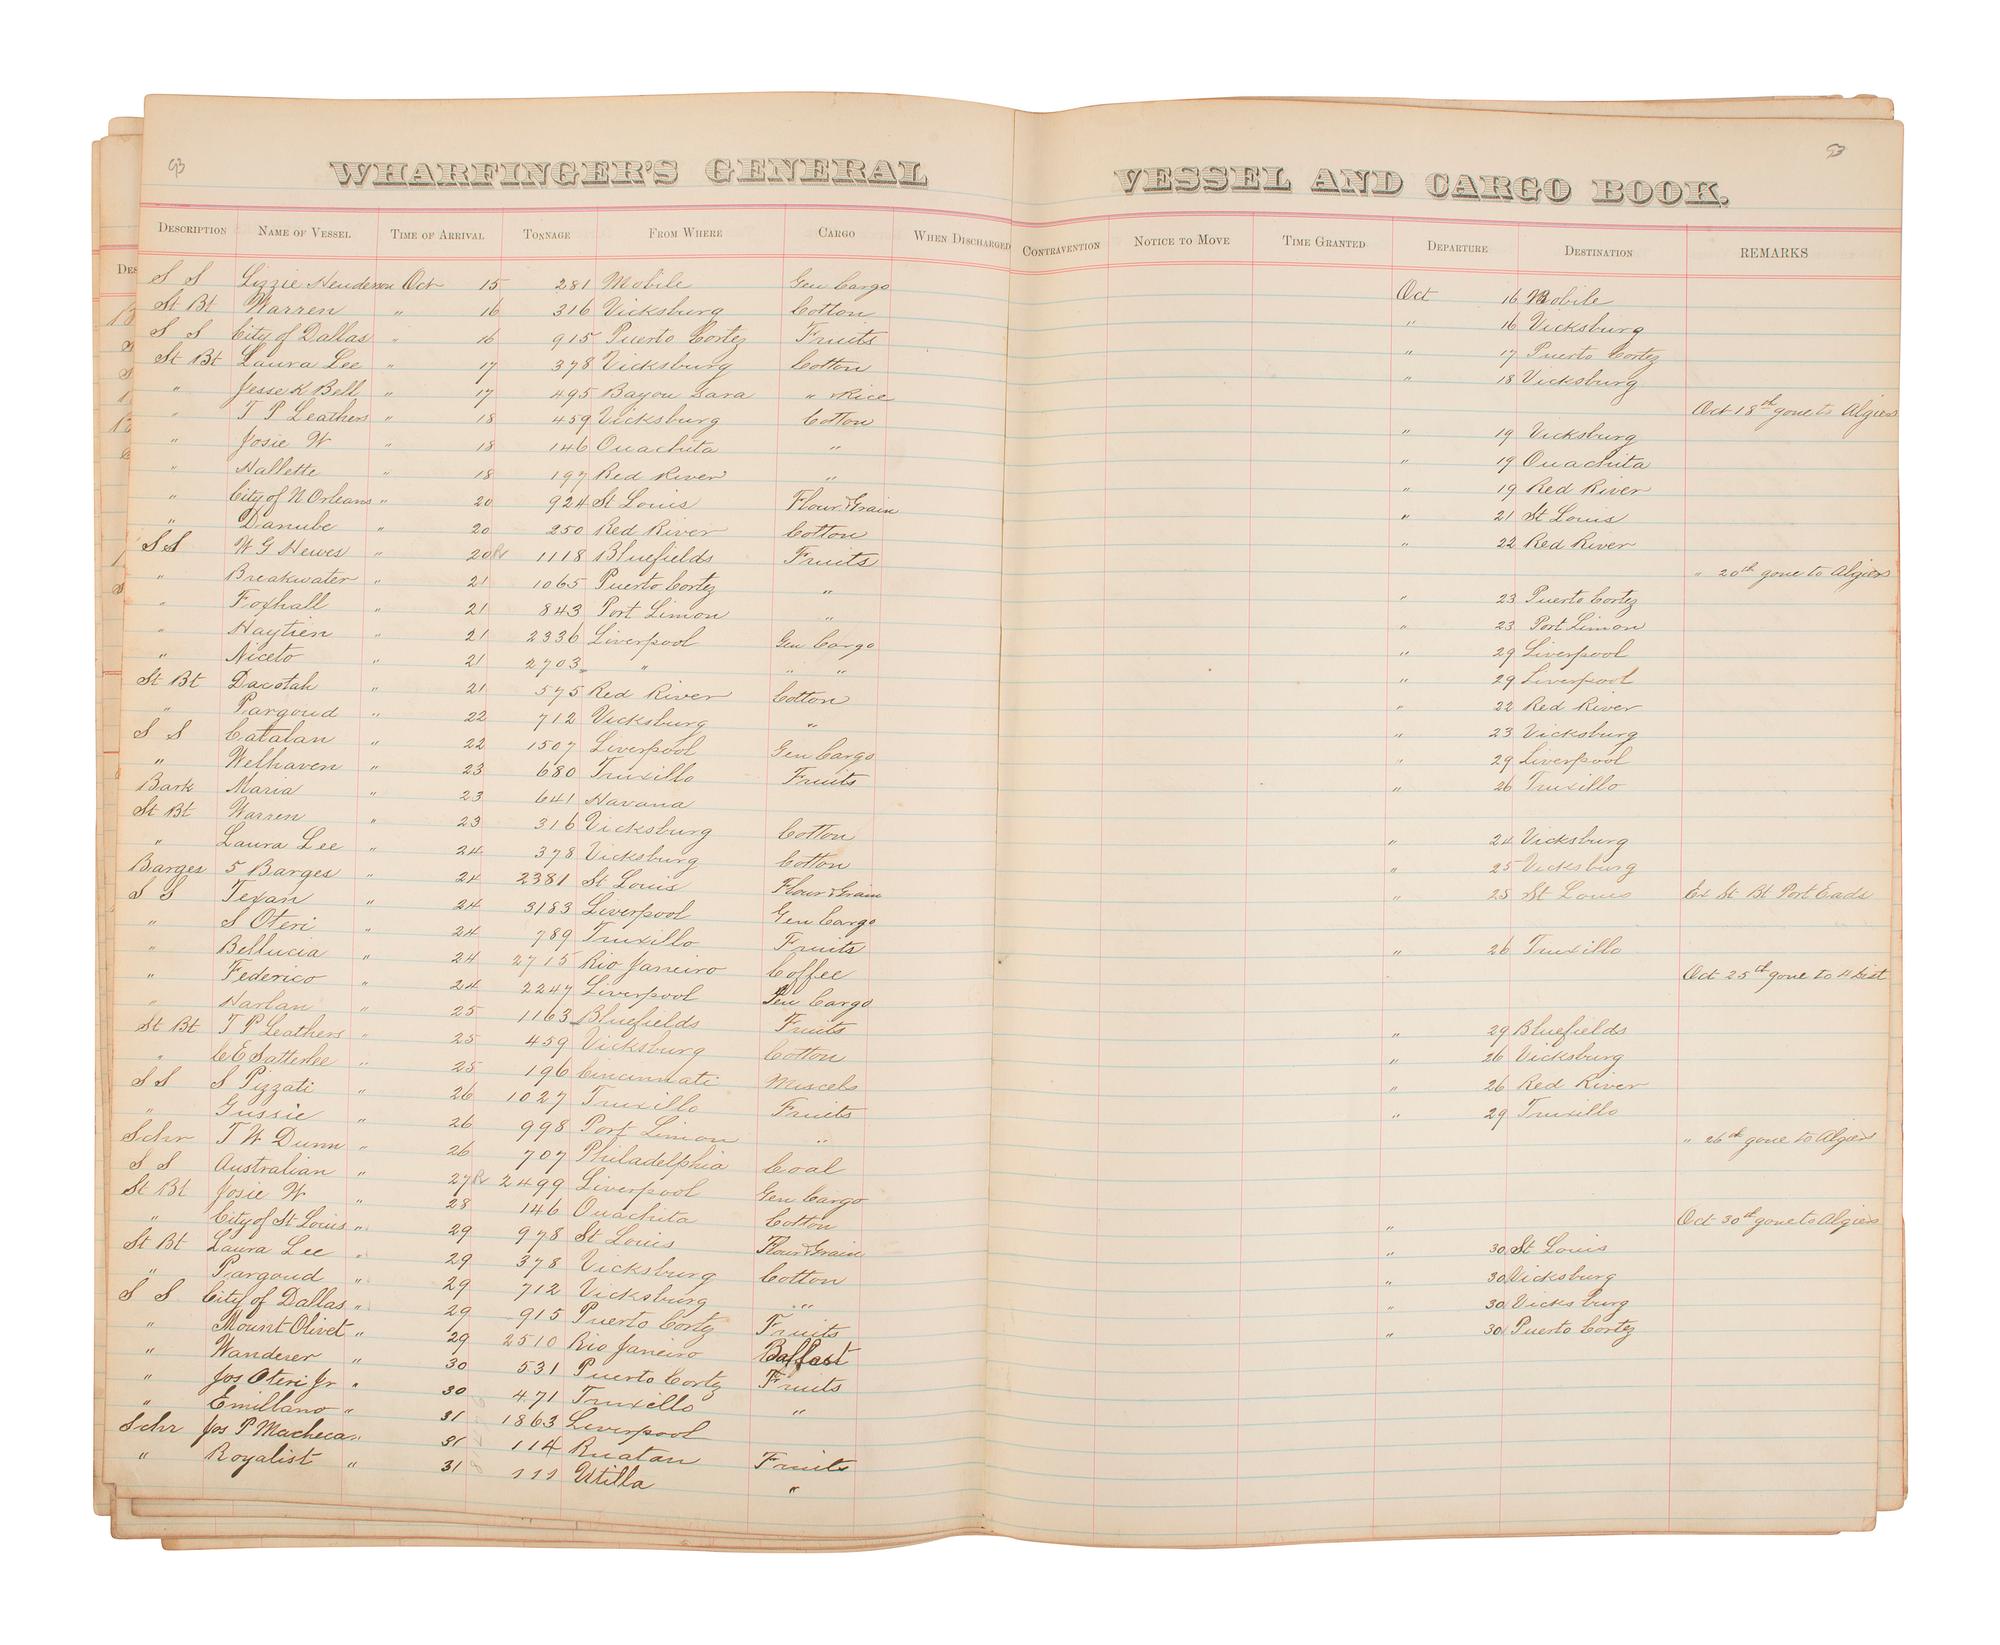 93
93
WHARFINGER'S GENERAL VESSEL AND CARGO BOOK.
DESCRIPTION NAME OF VESSEL TIME OF ARRIVAL TONNAGE FROM WHERE CARGO WHEN DISCHARGED CONTRAVENTION NOTICE TO MOVE TIME GRANTED DEPARTURE DESTINATION REMARKS
S S Lizzie Henderson Oct 15 281 Mobile Gen Cargo Oct 16 Mobile
St Bt Warren " 16 316 Vicksburg Cotton " 16 Vicksburg
S S City of Dallas " 16 915 Puerto Cortez Fruits " 17 Puerto Cortez
St Bt Laura Lee " 17 378 Vicksburg Cotton " 18 Vicksburg
" Jesse K Bell " 17 495 Bayou Sara " & Rice Oct 18th gone to Algiers
" T P Leathers " 18 459 Vicksburg Cotton " 19 Vicksburg
" Josie W " 18 146 Ouachita " " 19 Ouachita
" Hallette " 18 197 Red River " " 19 Red River
" City of N Orleans " 20 924 St Louis Flour & Grain " 21 St Louis
" Danube " 20 250 Red River Cotton " 22 Red River
S S W G Hewes " 20 R 1118 Bluefields Fruits " 20th gone to Algiers
" Breakwater " 21 1065 Puerto Cortez " " 23 Puerto Cortez
" Foxhall " 21 843 Port Limon " " 23 Port Limon
" Haytien " 21 2336 Liverpool Gen Cargo " 29 Liverpool
" Niceto " 21 2703 " " " " 29 Liverpool
St Bt Dacotah " 21 575 Red River Cotton " 22 Red River
" Pargoud " 22 712 Vicksburg " " 23 Vicksburg
S S Catalan " 22 1507 Liverpool Gen Cargo " 29 Liverpool
" Welhaven " 23 680 Truxillo Fruits " 26 Truxillo
Bark Maria " 23 641 Havana
St Bt Warren " 23 316 Vicksburg Cotton " 24 Vicksburg
" Laura Lee " 24 378 Vicksburg Cotton " 25 Vicksburg
Barges 5 Barges " 24 2381 St Louis Flour & Grain " 25 St Louis Ex St Bt Port Eads
S S Texan " 24 3183 Liverpool Gen Cargo
" S Oteri " 24 789 Truxillo Fruits " 26 Truxillo
" Bellucia " 24 2715 Rio Janeiro Coffee Oct 25th gone to 4 Dist
" Federico " 24 2247 Liverpool Gen Cargo
" Harlan " 25 1163 Bluefields Fruits " 29 Bluefields
St Bt T P Leathers " 25 459 Vicksburg Cotton " 26 Vicksburg
" C E Satterlee " 25 196 Cincinnati Miscels " 26 Red River
S S S Pizzati " 26 1027 Truxillo Fruits " 29 Truxillo
" Gussie " 26 998 Port Limon " " 26th gone to Algiers
Schr T W Dunn " 26 707 Philadelphia Coal
S S Australian " 27 R 2499 Liverpool Gen Cargo
St Bt Josie W " 28 146 Ouachita Cotton " Oct 30th gone to Algiers
" City of St Louis " 29 978 St Louis Flour & Grain " 30 St Louis
St Bt Laura Lee " 29 378 Vicksburg Cotton " 30 Vicksburg
" Pargoud " 29 712 Vicksburg " " 30 Vicksburg
S S City of Dallas " 29 915 Puerto Cortez Fruits " 30 Puerto Cortez
" Mount Olivet " 29 2510 Rio Janeiro Ballast
" Wanderer " 30 531 Puerto Cortez Fruits
" Jos Oteri Jr " 30 471 Truxillo "
" Emillano " 31 1863 Liverpool
Schr Jos P Macheca " 31 114 Ruatan Fruits
" Royalist " 31 111 Utilla "